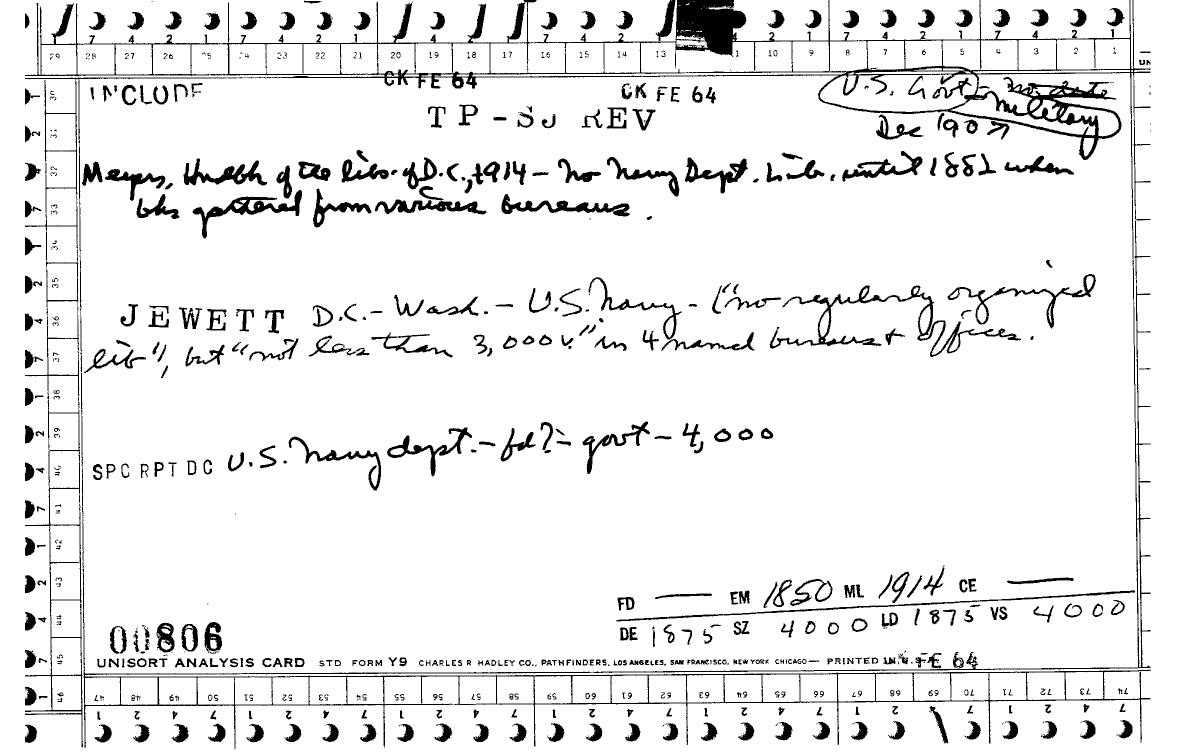 29 28 27 26 25 24 23 22 21 20 19 18 17 16 15 14 13 11 10 9 8 7 6 5 4 3 2 1
INCLUDE CK FE 64 CK FE 64 U.S. Govt - no date
TP-SJ REV military
Dec 1907
Meyers, Hndbk of the libs. of D.C., 1914 - No Navy Dept. Lib. until 1882 when
bks gathered from various bureaus.
JEWETT D.C. - Wash. - U.S. Navy - ("no regularly organized
lib"), but "not less than 3,000 v." in 4 named bureaus + offices.
SPC RPT DC U.S. Navy dept. - fd? - govt - 4,000
FD — EM 1850 ML 1914 CE —
DE 1875 SZ 4000 LD 1875 VS 4000
00806
UNISORT ANALYSIS CARD STD FORM Y9 CHARLES R HADLEY CO., PATHFINDERS, LOS ANGELES, SAN FRANCISCO, NEW YORK CHICAGO — PRINTED IN U. FE 64
47 48 49 50 51 52 53 54 55 56 57 58 59 60 61 62 63 64 65 66 67 68 69 70 71 72 73 74